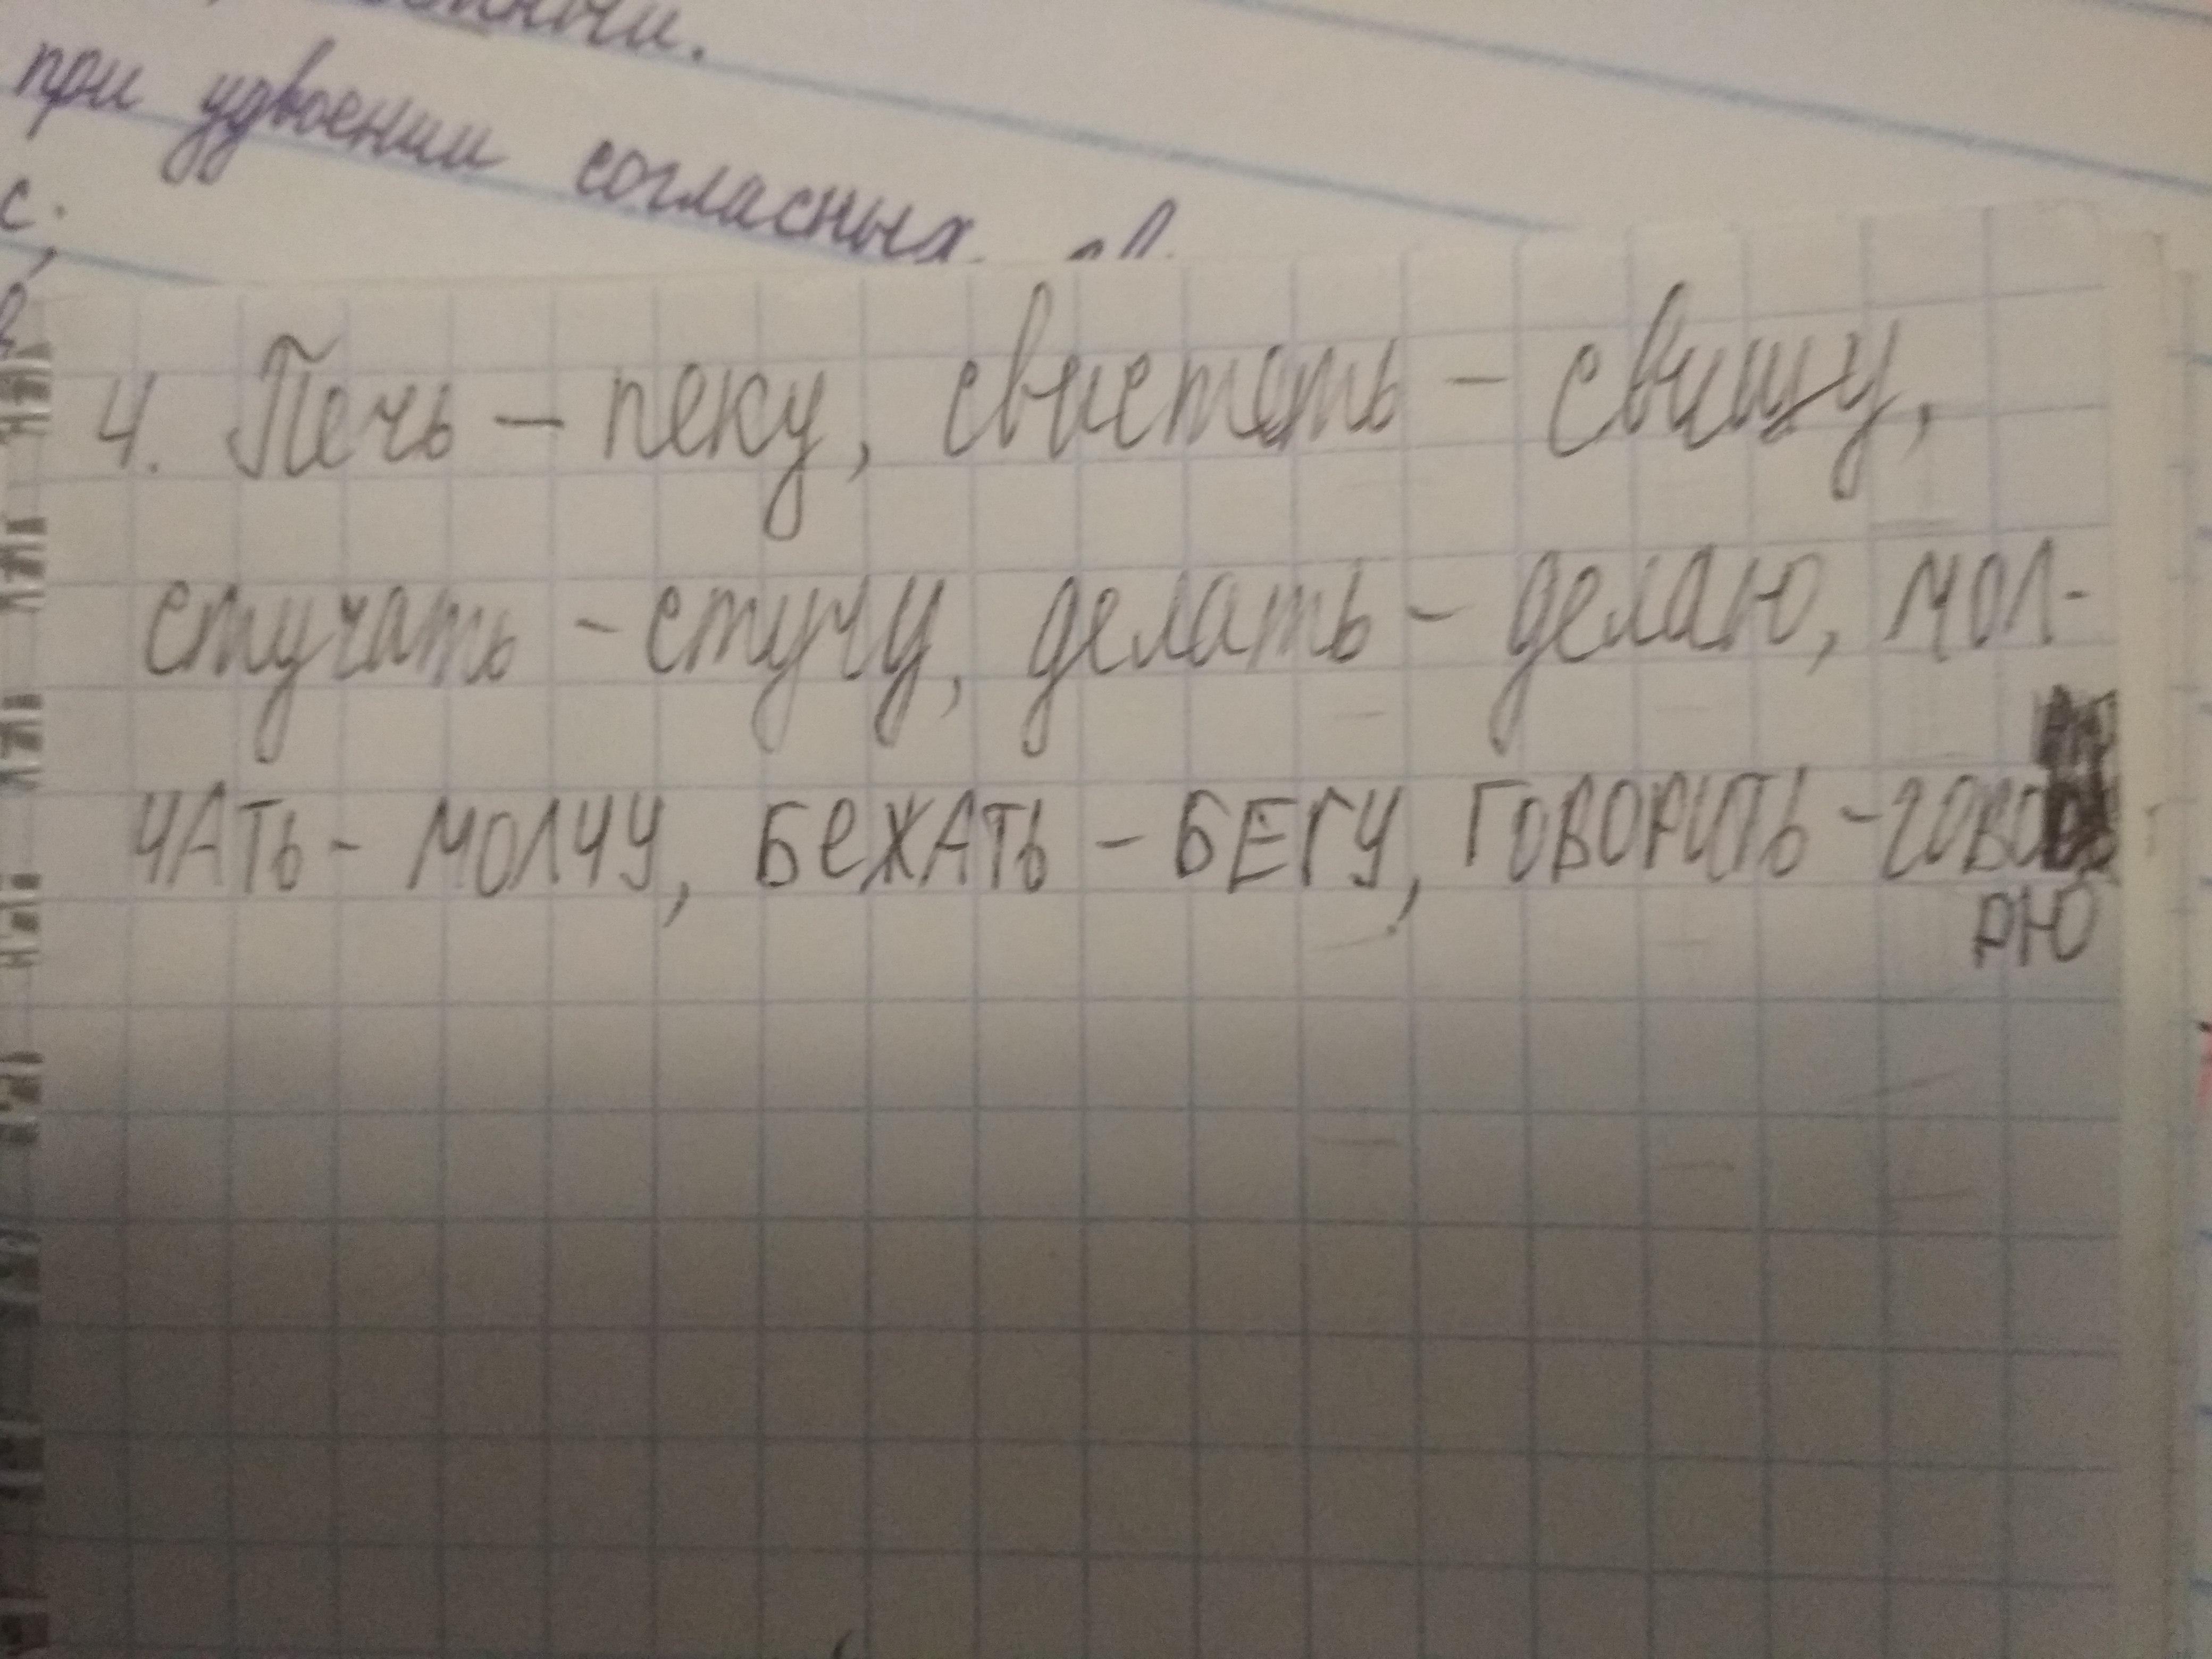 при удвоении согласных.
с.
4. Печь – пеку, свистеть – свищу,
стучать – стучу, делать – делаю, мол-
чать – молчу, БеЖАТЬ – БЕГУ, ГОВОРИТЬ – гово
рю